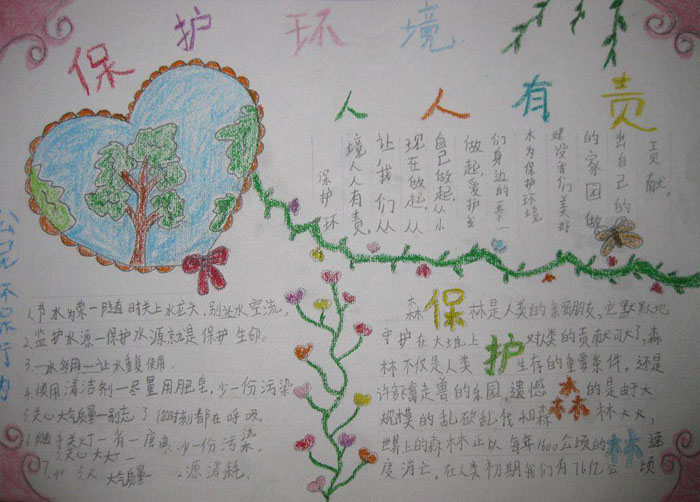 保护环境
人人有责
保护环
境人人有责,
让我们从
现在做起,从
自己做起,从小
做起,爱护我
们身边的一草一
木为保护环境
建设我们美好
的家园做
出自己的
贡献.
公民环保行为
1.节水为荣一随时关上水龙头,别让水空流.
2.监护水源一保护水源就是保护生命.
3.一水多用一让水重复使用.
4.慎用清洁剂一尽量用肥皂,少一份污染
关心大气质量一别忘了你时刻都在呼吸
随手关灯一省一度电 少一份污染
关心大
7. 大气质量 源消耗.
森林是人类的亲密朋友,它默默地
守护在大地上 对人类的贡献可大了,森
林不仅是人类生存的重要条件,还是
许多飞禽走兽的乐园,遗憾的是由于大
规模的乱砍乱伐和森林大火,
世界上的森林正以每年1600公顷的速
度消亡,在人类初期我们有76亿公顷
保
护
森
林